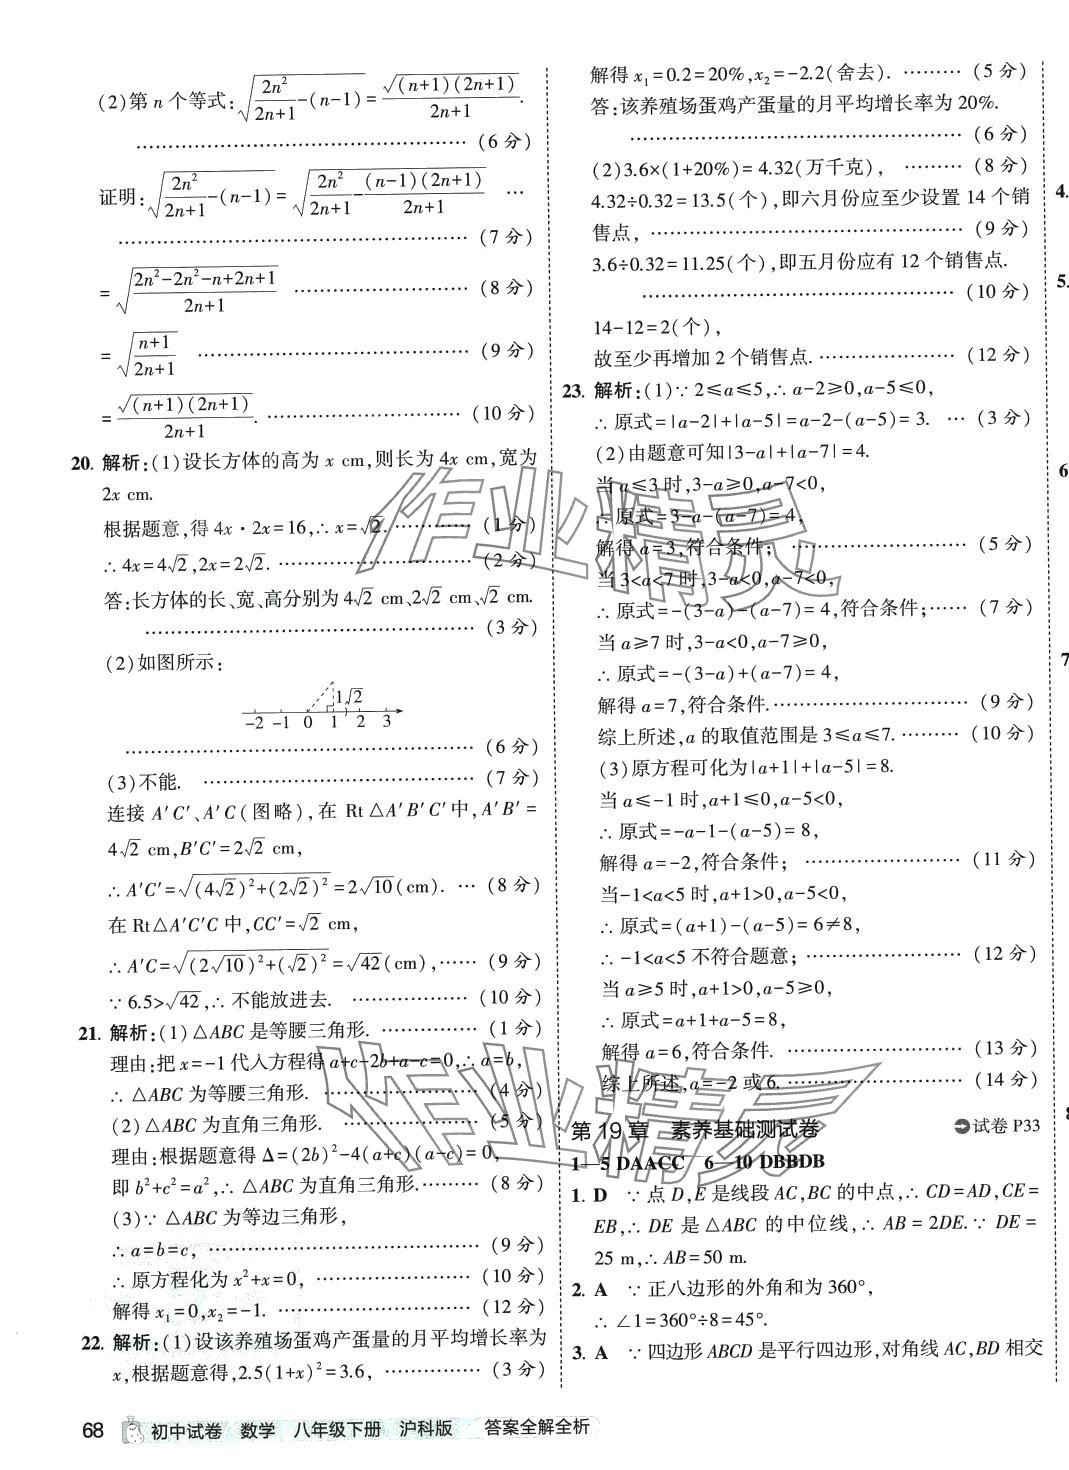 (2)第 n 个等式:√(2n²/(2n+1)-(n-1))=√((n+1)(2n+1))/(2n+1).
……(6 分)
证明:√(2n²/(2n+1)-(n-1))=√(2n²/(2n+1)-(n-1)(2n+1)/(2n+1)) …
……(7 分)
=√((2n²-2n²-n+2n+1)/(2n+1)) ……(8 分)
=√((n+1)/(2n+1)) ……(9 分)
=√((n+1)(2n+1))/(2n+1). ……(10 分)
20. 解析:(1)设长方体的高为 x cm,则长为 4x cm,宽为
2x cm.
根据题意,得 4x·2x=16,∴ x=√2. ……(1 分)
∴ 4x=4√2,2x=2√2. ……(2 分)
答:长方体的长、宽、高分别为 4√2 cm、2√2 cm、√2 cm.
……(3 分)
(2)如图所示:
1 √2
-2 -1 0 1 2 3
……(6 分)
(3)不能. ……(7 分)
连接 A′C′、A′C(图略),在 Rt△A′B′C′中,A′B′=
4√2 cm,B′C′=2√2 cm,
∴ A′C′=√((4√2)²+(2√2)²)=2√10(cm). …(8 分)
在 Rt△A′C′C 中,CC′=√2 cm,
∴ A′C=√((2√10)²+(√2)²)=√42(cm),……(9 分)
∵ 6.5>√42,∴ 不能放进去. ……(10 分)
21. 解析:(1)△ABC 是等腰三角形. ……(1 分)
理由:把 x=-1 代入方程得 a+c-2b+a-c=0,∴ a=b,
∴ △ABC 为等腰三角形. ……(4 分)
(2)△ABC 为直角三角形. ……(5 分)
理由:根据题意得 Δ=(2b)²-4(a+c)(a-c)=0,
即 b²+c²=a²,∴ △ABC 为直角三角形. ……(8 分)
(3)∵ △ABC 为等边三角形,
∴ a=b=c, ……(9 分)
∴ 原方程化为 x²+x=0, ……(10 分)
解得 x₁=0,x₂=-1. ……(12 分)
22. 解析:(1)设该养殖场蛋鸡产蛋量的月平均增长率为
x,根据题意得,2.5(1+x)²=3.6, ……(3 分)
68 初中试卷 数学 八年级下册 沪科版 答案全解全析
解得 x₁=0.2=20%,x₂=-2.2(舍去). ……(5 分)
答:该养殖场蛋鸡产蛋量的月平均增长率为 20%.
……(6 分)
(2)3.6×(1+20%)=4.32(万千克), ……(8 分)
4.32÷0.32=13.5(个),即六月份应至少设置 14 个销
售点, ……(9 分)
3.6÷0.32=11.25(个),即五月份应有 12 个销售点.
……(10 分)
14-12=2(个),
故至少再增加 2 个销售点. ……(12 分)
23. 解析:(1)∵ 2≤a≤5,∴ a-2≥0,a-5≤0,
∴ 原式=|a-2|+|a-5|=a-2-(a-5)=3. …(3 分)
(2)由题意可知|3-a|+|a-7|=4.
当 a≤3 时,3-a≥0,a-7<0,
∴ 原式=3-a-(a-7)=4,
解得 a=3,符合条件; ……(5 分)
当 3<a<7 时,3-a<0,a-7<0,
∴ 原式=-(3-a)-(a-7)=4,符合条件;……(7 分)
当 a≥7 时,3-a<0,a-7≥0,
∴ 原式=-(3-a)+(a-7)=4,
解得 a=7,符合条件. ……(9 分)
综上所述,a 的取值范围是 3≤a≤7. ……(10 分)
(3)原方程可化为|a+1|+|a-5|=8.
当 a≤-1 时,a+1≤0,a-5<0,
∴ 原式=-a-1-(a-5)=8,
解得 a=-2,符合条件; ……(11 分)
当-1<a<5 时,a+1>0,a-5<0,
∴ 原式=(a+1)-(a-5)=6≠8,
∴ -1<a<5 不符合题意; ……(12 分)
当 a≥5 时,a+1>0,a-5≥0,
∴ 原式=a+1+a-5=8,
解得 a=6,符合条件. ……(13 分)
综上所述,a=-2 或 6. ……(14 分)
第 19 章 素养基础测试卷 试卷 P33
1—5 DAACC 6—10 DBBDB
1. D ∵ 点 D,E 是线段 AC,BC 的中点,∴ CD=AD,CE=
EB,∴ DE 是 △ABC 的中位线,∴ AB=2DE.∵ DE=
25 m,∴ AB=50 m.
2. A ∵ 正八边形的外角和为 360°,
∴ ∠1=360°÷8=45°.
3. A ∵ 四边形 ABCD 是平行四边形,对角线 AC,BD 相交
4.
5.
6
7
8
作业精灵
作业精灵